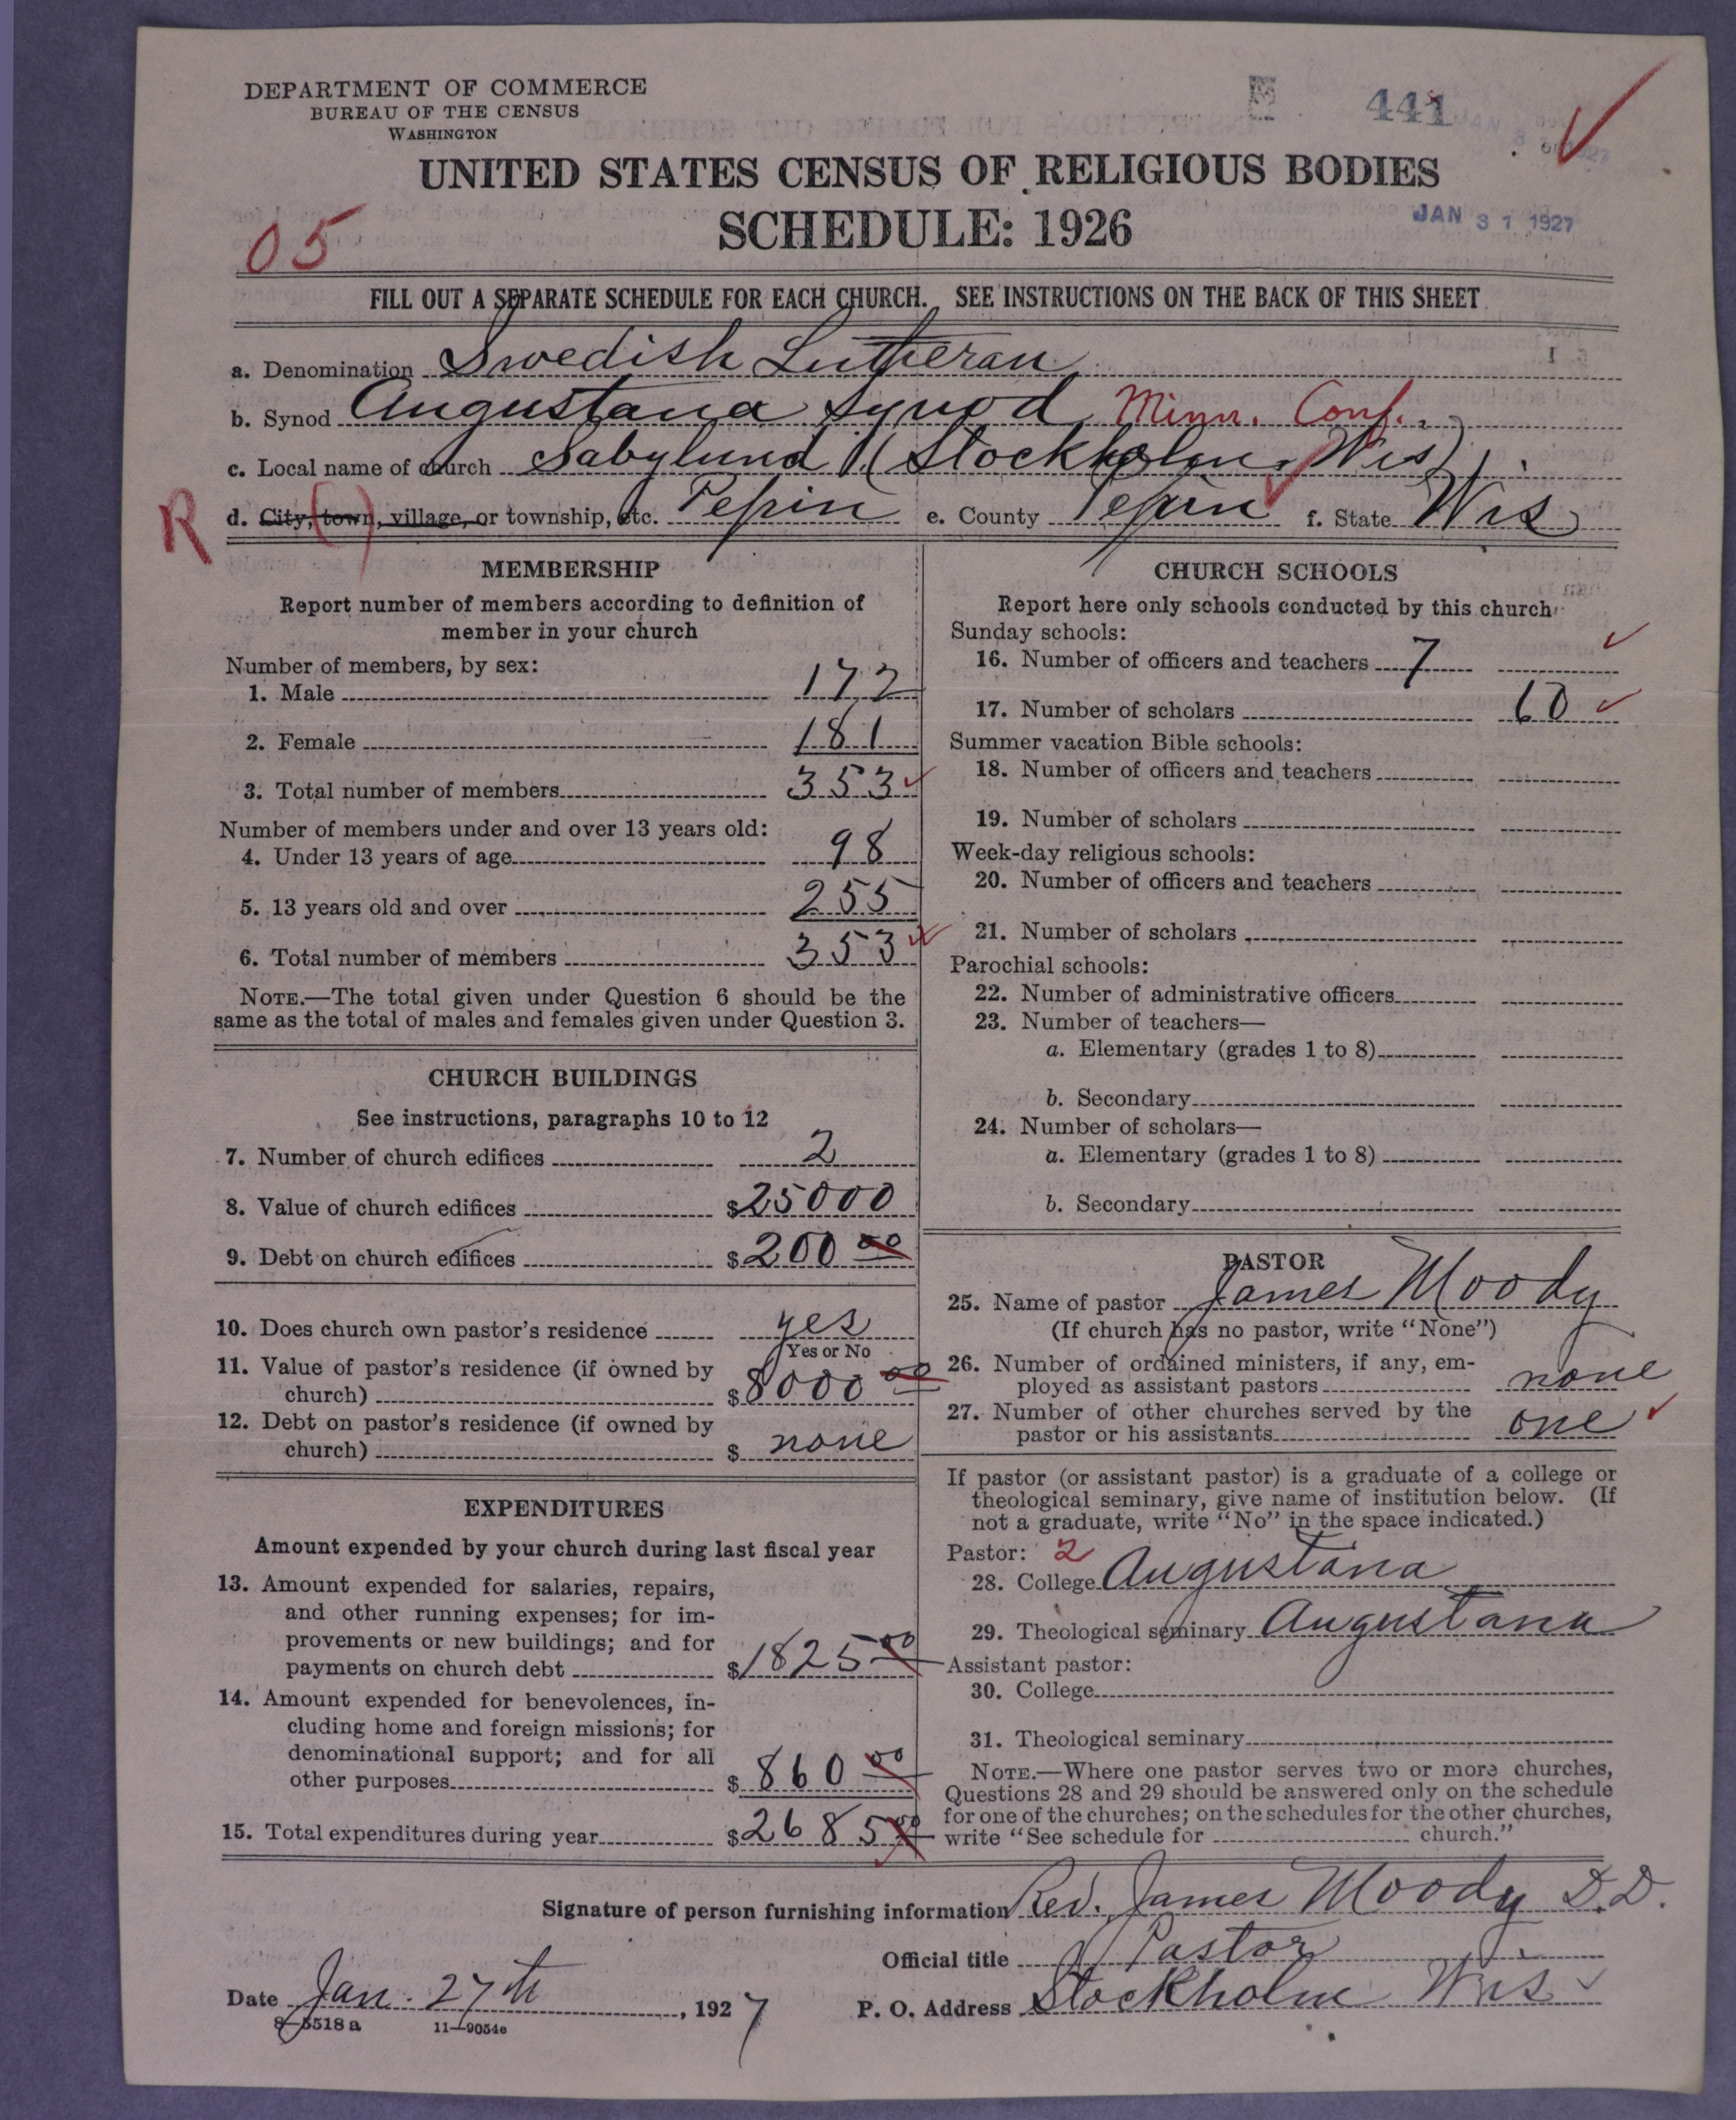 DEPARTMENT OF COMMERCE
BUREAU OF THE CENSUS
WASHINGTON
441
UNITED STATES CENSUS OF RELIGIOUS BODIES
SCHEDULE: 1926
JAN 31 1927
05
FILL OUT A SEPARATE SCHEDULE FOR EACH CHURCH. SEE INSTRUCTIONS ON THE BACK OF THIS SHEET
a. Denomination Swedish Lutheran
b. Synod Augustana Synod Minn. Conf.
c. Local name of church Sabylund (Stockholm, Wis)
R
d. City, town, village, or township, etc. Pepin e. County Pepin f. State Wis
MEMBERSHIP
Report number of members according to definition of
member in your church
Number of members, by sex:
1. Male 172
2. Female 181
3. Total number of members 353
Number of members under and over 13 years old:
4. Under 13 years of age 98
5. 13 years old and over 255
6. Total number of members 353
NOTE.—The total given under Question 6 should be the
same as the total of males and females given under Question 3.
CHURCH BUILDINGS
See instructions, paragraphs 10 to 12
7. Number of church edifices 2
8. Value of church edifices $25000
9. Debt on church edifices $200 00
10. Does church own pastor's residence yes
Yes or No
11. Value of pastor's residence (if owned by
church) $8000 00
12. Debt on pastor's residence (if owned by
church) $ none
EXPENDITURES
Amount expended by your church during last fiscal year
13. Amount expended for salaries, repairs,
and other running expenses; for im-
provements or new buildings; and for
payments on church debt $1825 00
14. Amount expended for benevolences, in-
cluding home and foreign missions; for
denominational support; and for all
other purposes $860 00
15. Total expenditures during year $2685 00
CHURCH SCHOOLS
Report here only schools conducted by this church
Sunday schools:
16. Number of officers and teachers 7
17. Number of scholars 60
Summer vacation Bible schools:
18. Number of officers and teachers
19. Number of scholars
Week-day religious schools:
20. Number of officers and teachers
21. Number of scholars
Parochial schools:
22. Number of administrative officers
23. Number of teachers—
a. Elementary (grades 1 to 8)
b. Secondary
24. Number of scholars—
a. Elementary (grades 1 to 8)
b. Secondary
PASTOR
25. Name of pastor James Moody
(If church has no pastor, write "None")
26. Number of ordained ministers, if any, em-
ployed as assistant pastors none
27. Number of other churches served by the
pastor or his assistants one
If pastor (or assistant pastor) is a graduate of a college or
theological seminary, give name of institution below. (If
not a graduate, write "No" in the space indicated.)
Pastor: 2
28. College Augustana
29. Theological seminary Augustana
Assistant pastor:
30. College
31. Theological seminary
NOTE.—Where one pastor serves two or more churches,
Questions 28 and 29 should be answered only on the schedule
for one of the churches; on the schedules for the other churches,
write "See schedule for church."
Signature of person furnishing information Rev. James Moody D.D.
Official title Pastor
Date Jan. 27th, 1927 P. O. Address Stockholm Wis
8—5518 a 11—9054e